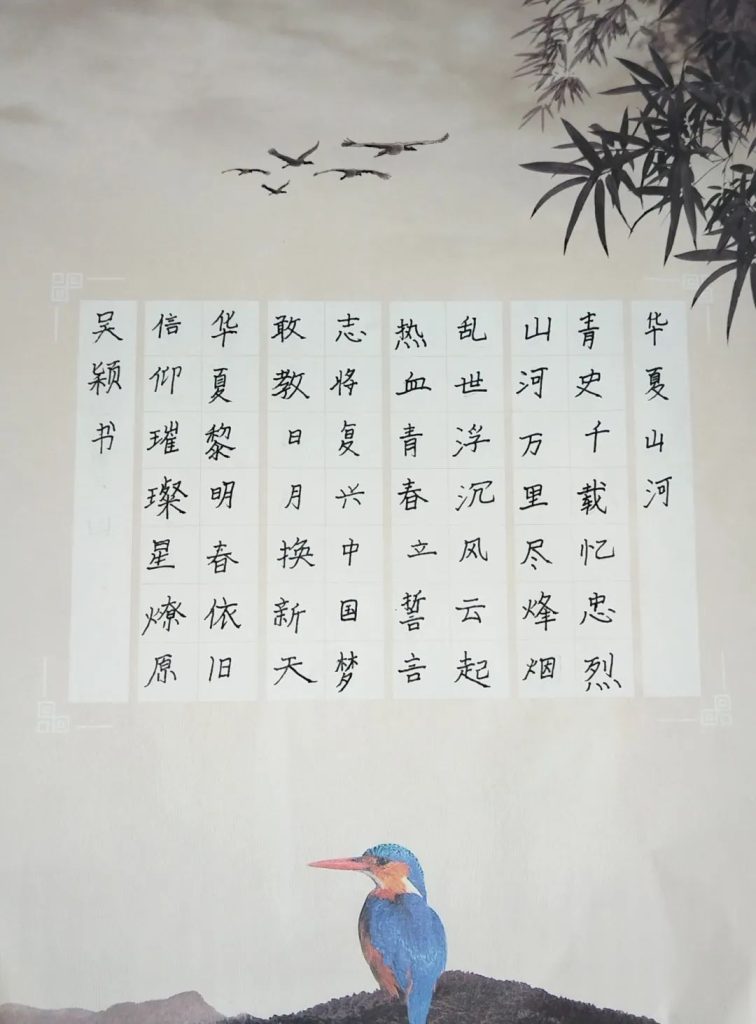 华夏山河
青史千载忆忠烈
山河万里尽烽烟
乱世浮沉风云起
热血青春立誓言
志将复兴中国梦
敢教日月换新天
华夏黎明春依旧
信仰璀璨星燎原
吴颖书